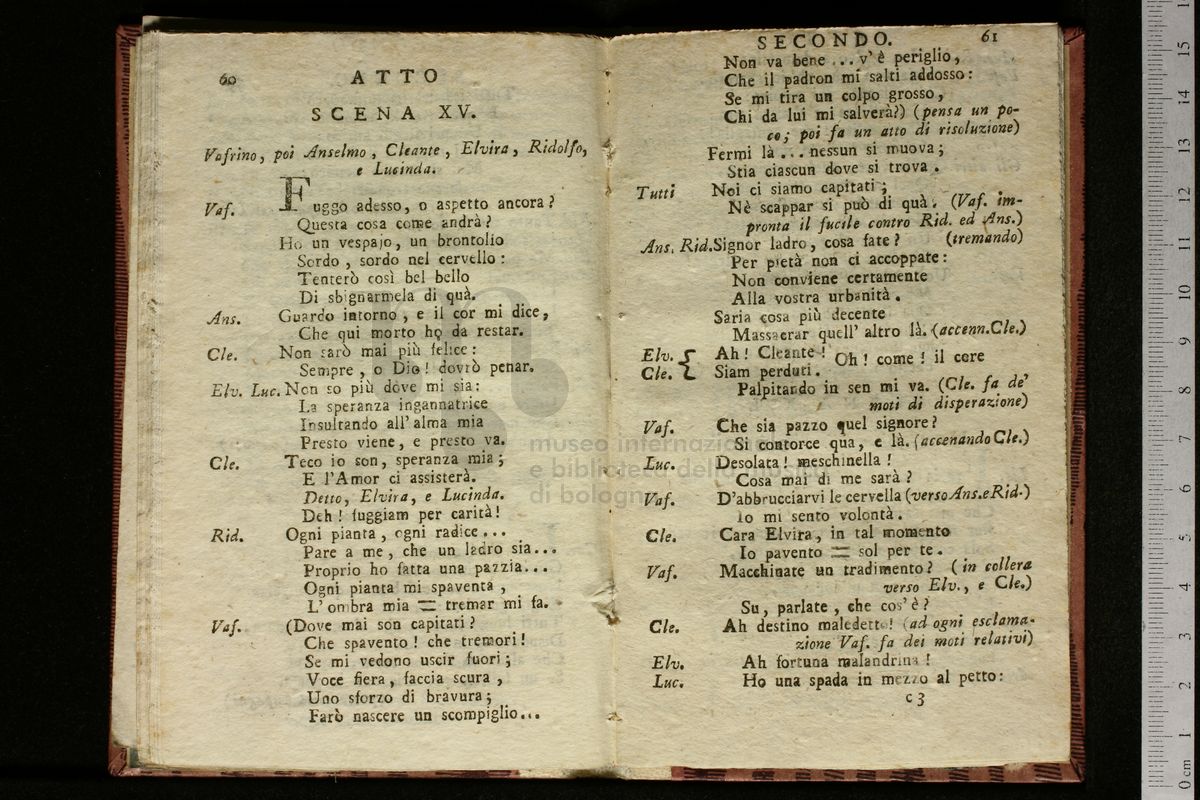 60
ATTO
SCENA XV.
Vafrino, poi Anselmo, Cleante, Elvira, Ridolfo,
e Lucinda.
Vaf. Fuggo adesso, o aspetto ancora?
Questa cosa come andrà?
Ho un vespajo, un brontolio
Sordo, sordo nel cervello:
Tenterò così bel bello
Di sbignarmela di quà.
Ans. Guardo intorno, e il cor mi dice,
Che qui morto ho da restar.
Cle. Non sarò mai più felice:
Sempre, o Dio! dovrò penar.
Elv. Luc. Non so più dove mi sia:
La speranza ingannatrice
Insultando all'alma mia
Presto viene, e presto va.
Cle. Teco io son, speranza mia;
E l'Amor ci assisterà.
Detto, Elvira, e Lucinda.
Deh! fuggiam per carità!
Rid. Ogni pianta, ogni radice...
Pare a me, che un ladro sia...
Proprio ho fatta una pazzia...
Ogni pianta mi spaventa,
L'ombra mia = tremar mi fa.
Vaf. (Dove mai son capitati?
Che spavento! che tremori!
Se mi vedono uscir fuori;
Voce fiera, faccia scura,
Uno sforzo di bravura;
Farò nascere un scompiglio...
SECONDO. 61
Non va bene ... v'è periglio,
Che il padron mi salti addosso:
Se mi tira un colpo grosso,
Chi da lui mi salverà?) (pensa un po-
co; poi fa un atto di risoluzione)
Fermi là ... nessun si muova;
Stia ciascun dove si trova.
Tutti Noi ci siamo capitati;
Nè scappar si può di quà. (Vaf. im-
pronta il fucile contro Rid. ed Ans.)
Ans. Rid. Signor ladro, cosa fate? (tremando)
Per pietà non ci accoppate:
Non conviene certamente
Alla vostra urbanità.
Saria cosa più decente
Massacrar quell' altro là. (accenn. Cle.)
Elv. { Ah! Cleante! Oh! come! il core
Cle. { Siam perduti.
Palpitando in sen mi va. (Cle. fa de'
moti di disperazione)
Vaf. Che sia pazzo quel signore?
Si contorce qua, e là. (accenando Cle.)
Luc. Desolata! meschinella!
Cosa mai di me sarà?
Vaf. D'abbrucciarvi le cervella (verso Ans. e Rid.)
Io mi sento volontà.
Cle. Cara Elvira, in tal momento
Io pavento = sol per te.
Vaf. Macchinate un tradimento? (in collera
verso Elv., e Cle.)
Su, parlate, che cos'è?
Cle. Ah destino maledetto! (ad ogni esclama-
zione Vaf. fa dei moti relativi)
Elv. Ah fortuna malandrina!
Luc. Ho una spada in mezzo al petto:
C 3
museo internazionale
e biblioteca della musica
di bologna
0 cm 1 2 3 4 5 6 7 8 9 10 11 12 13 14 15